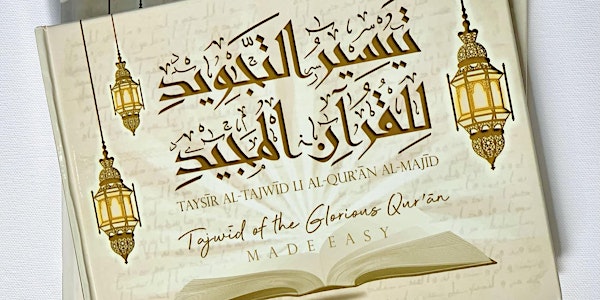 تَيْسِيرُ التَّجْوِيدِ
لِلْقُرْآنِ الْمَجِيدِ
TAYSĪR AL-TAJWĪD LI AL-QUR'ĀN AL-MAJĪD
Tajwīd of the Glorious Qur'ān
MADE EASY